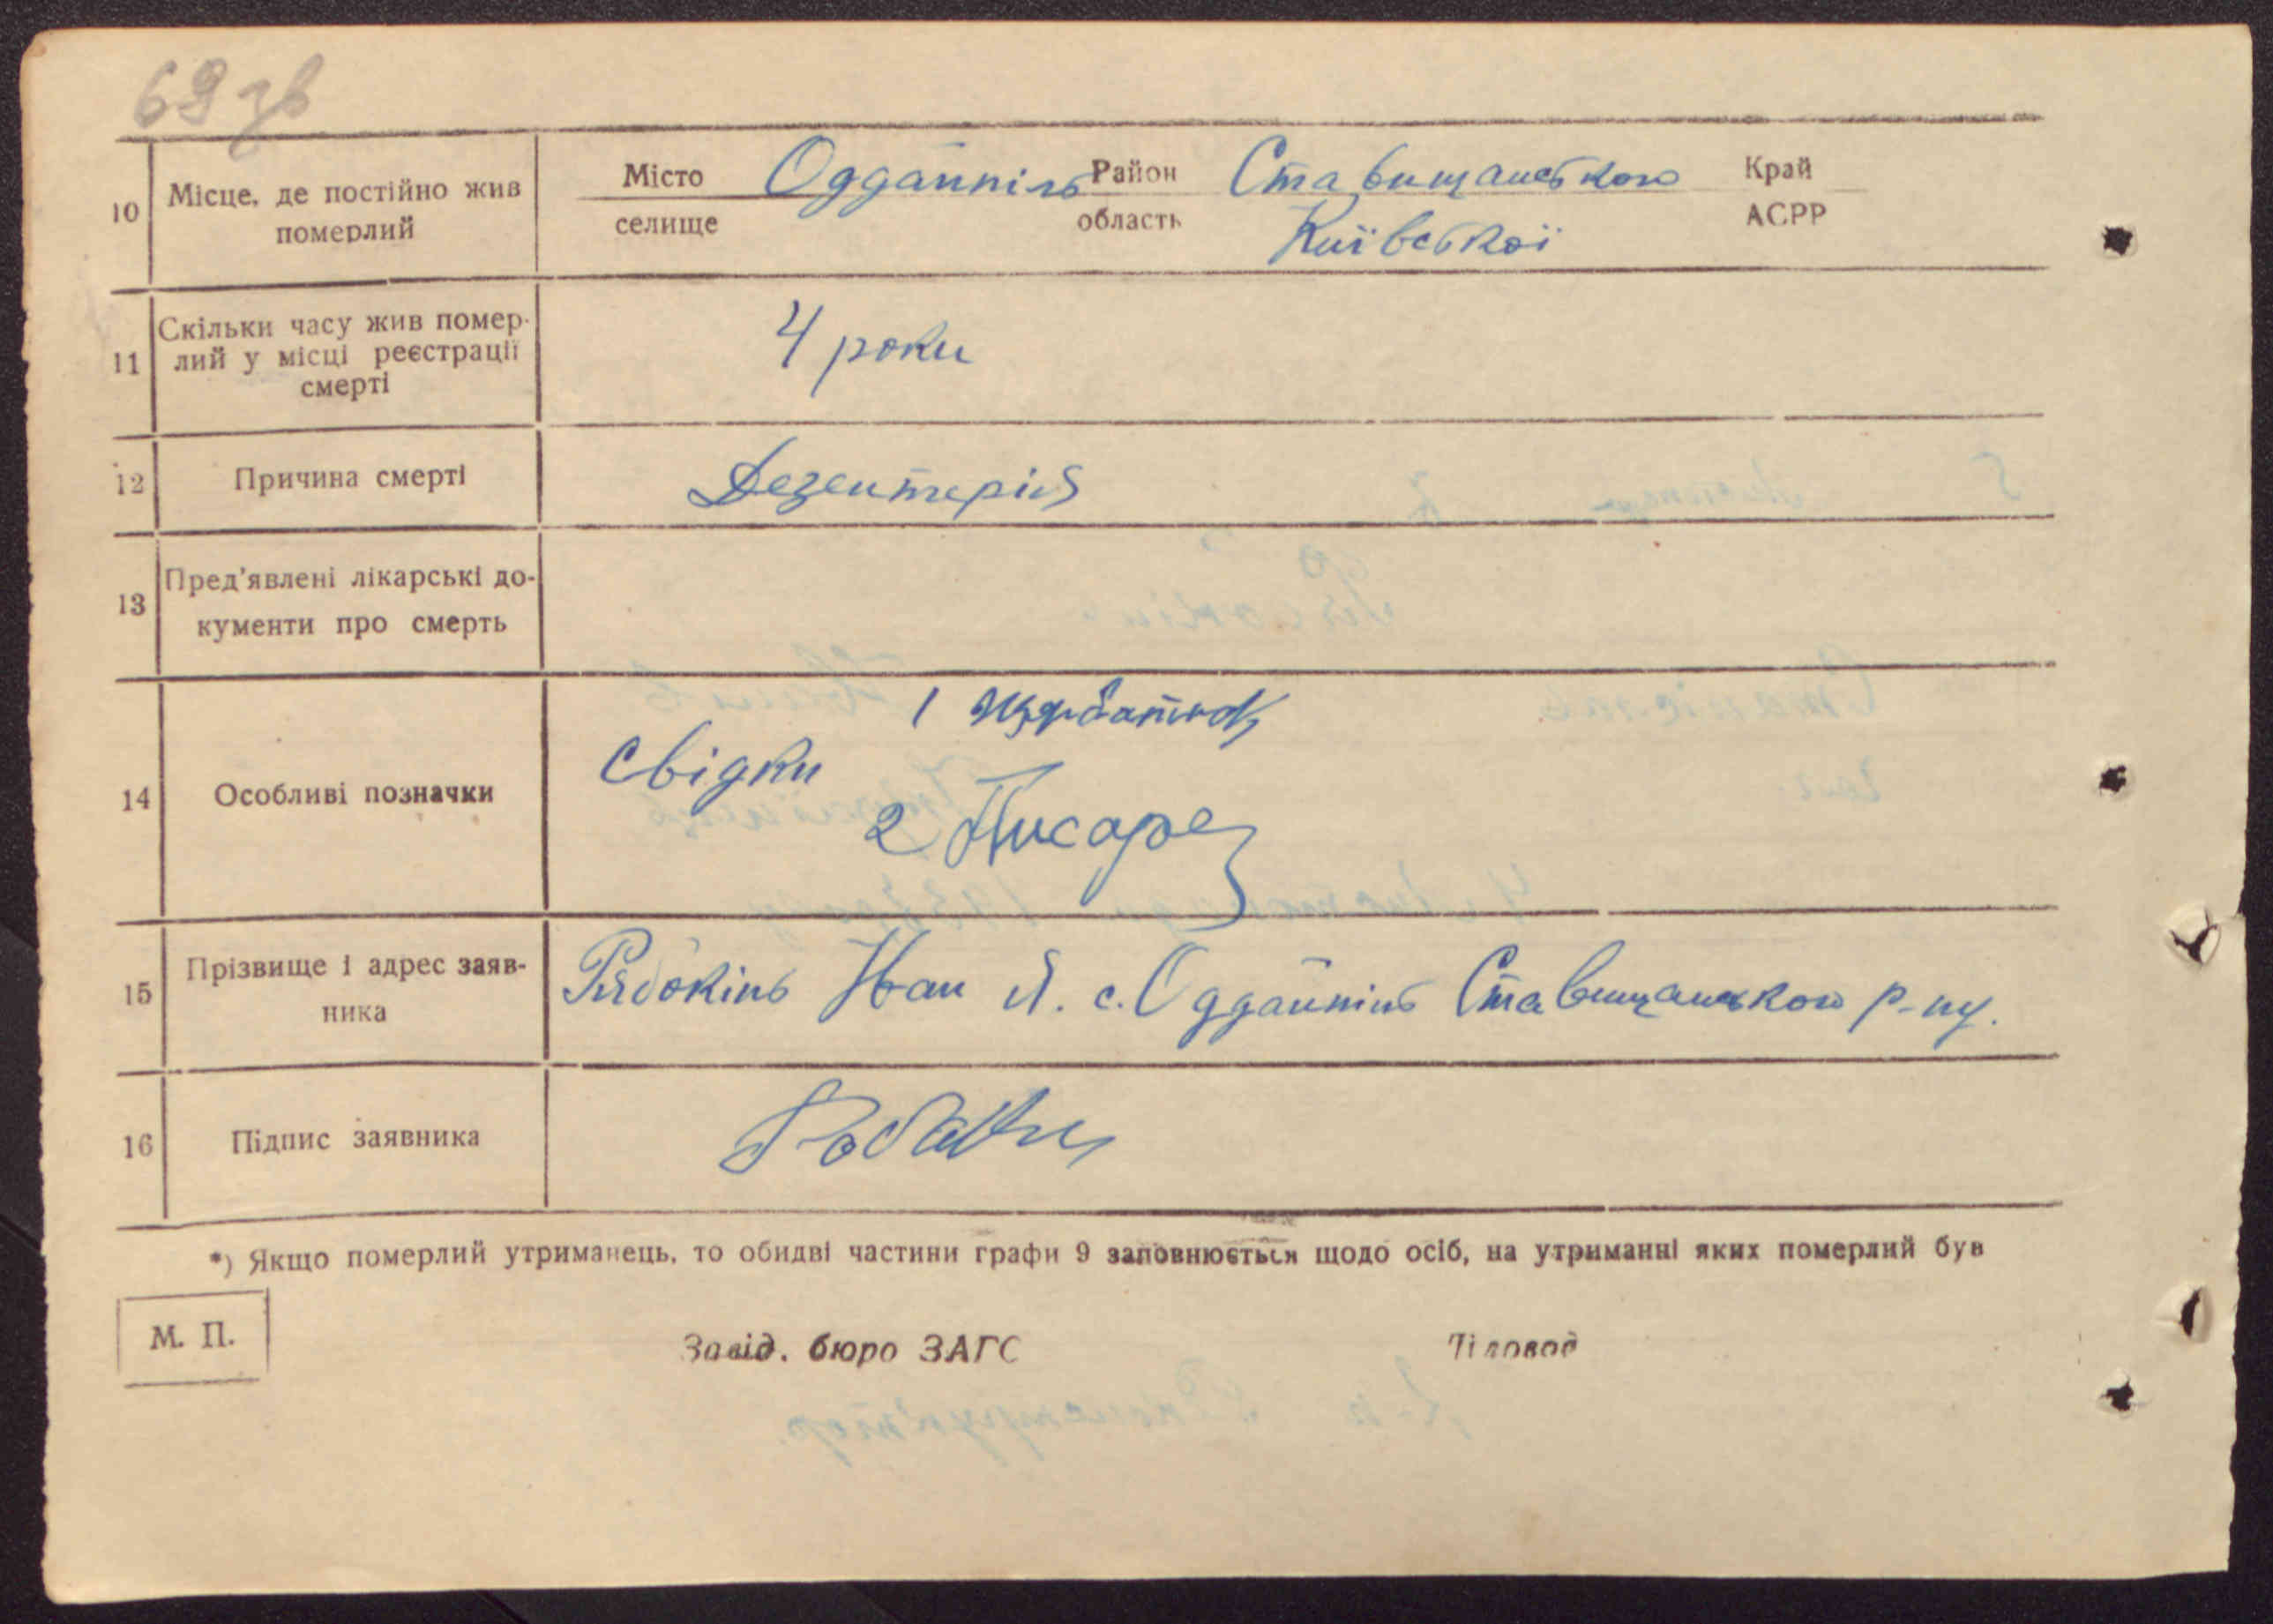 69 зв
10 Місце, де постійно жив померлий Місто селище Оддайпіль Район область Ставищанського Київської Край АСРР
11 Скільки часу жив помер-
лий у місці реєстрації
смерті 4 роки
12 Причина смерті Дезентерія
13 Пред'явлені лікарські до-
кументи про смерть
14 Особливі позначки свідки 1
2 Писаре
15 Прізвище і адрес заяв-
ника Рябокінь Іван Я. с. Оддайпіль Ставищанського р-ну.
16 Підпис заявника
*) Якщо померлий утриманець, то обидві частини графи 9 заповнюється щодо осіб, на утриманні яких померлий був
М. П.
Завід. бюро ЗАГС Діловод